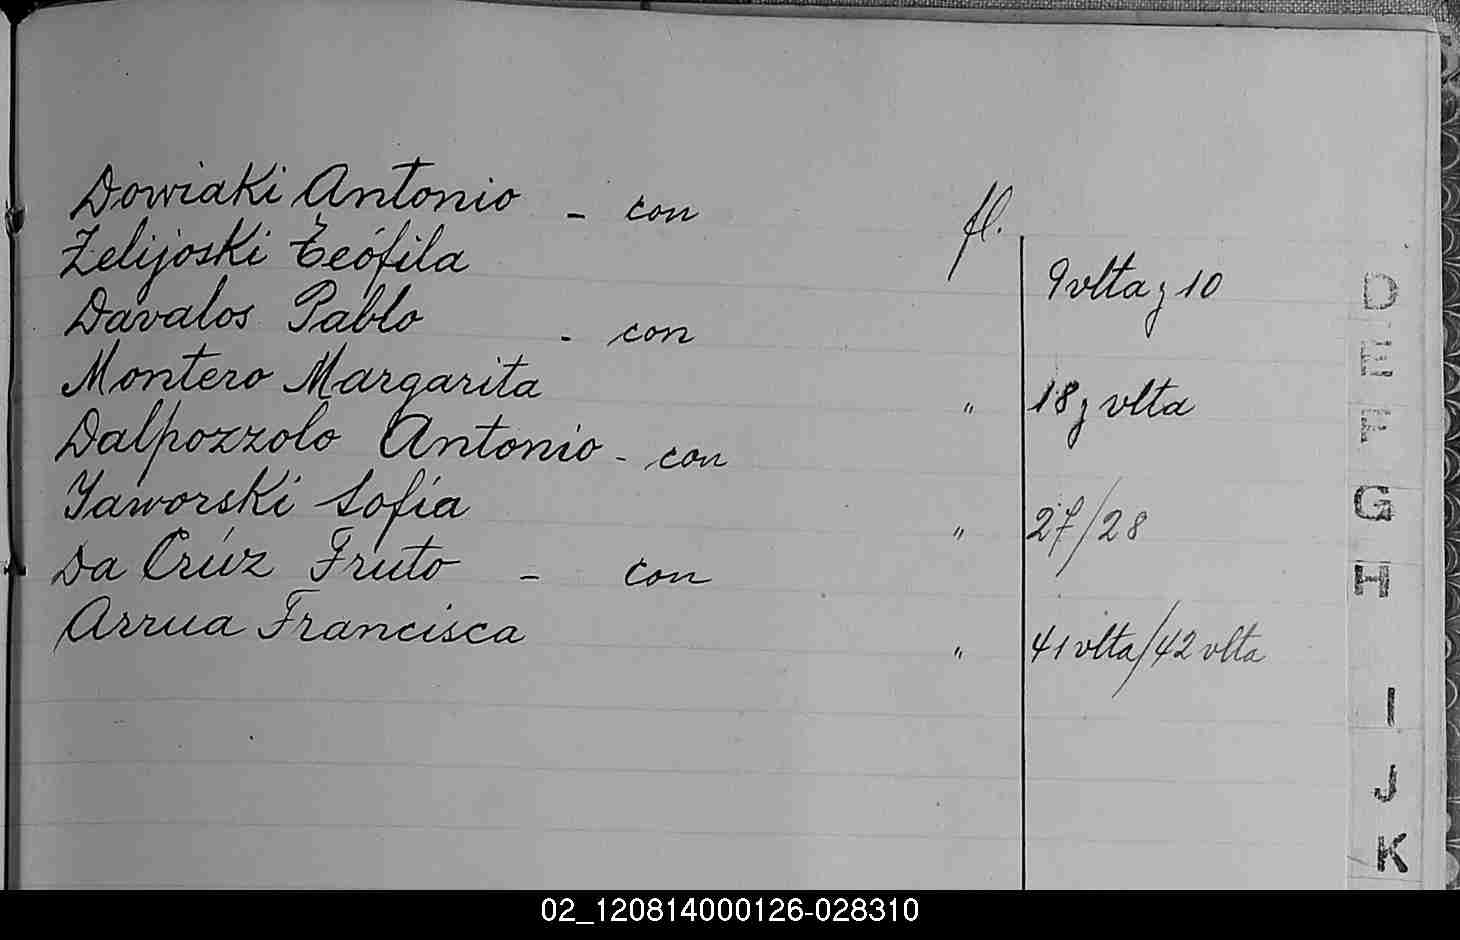 Dowiaki Antonio - con fl.
Zelijoski Teófila 9 vlta y 10
Davalos Pablo - con
Montero Margarita " 18 y vlta
Dalpozzolo Antonio - con
Yaworski Sofía " 27/28
Da Crúz Fruto - con
Arrua Francisca " 41 vlta/42 vlta
D
E
F
G
H
I
J
K
02_120814000126-028310